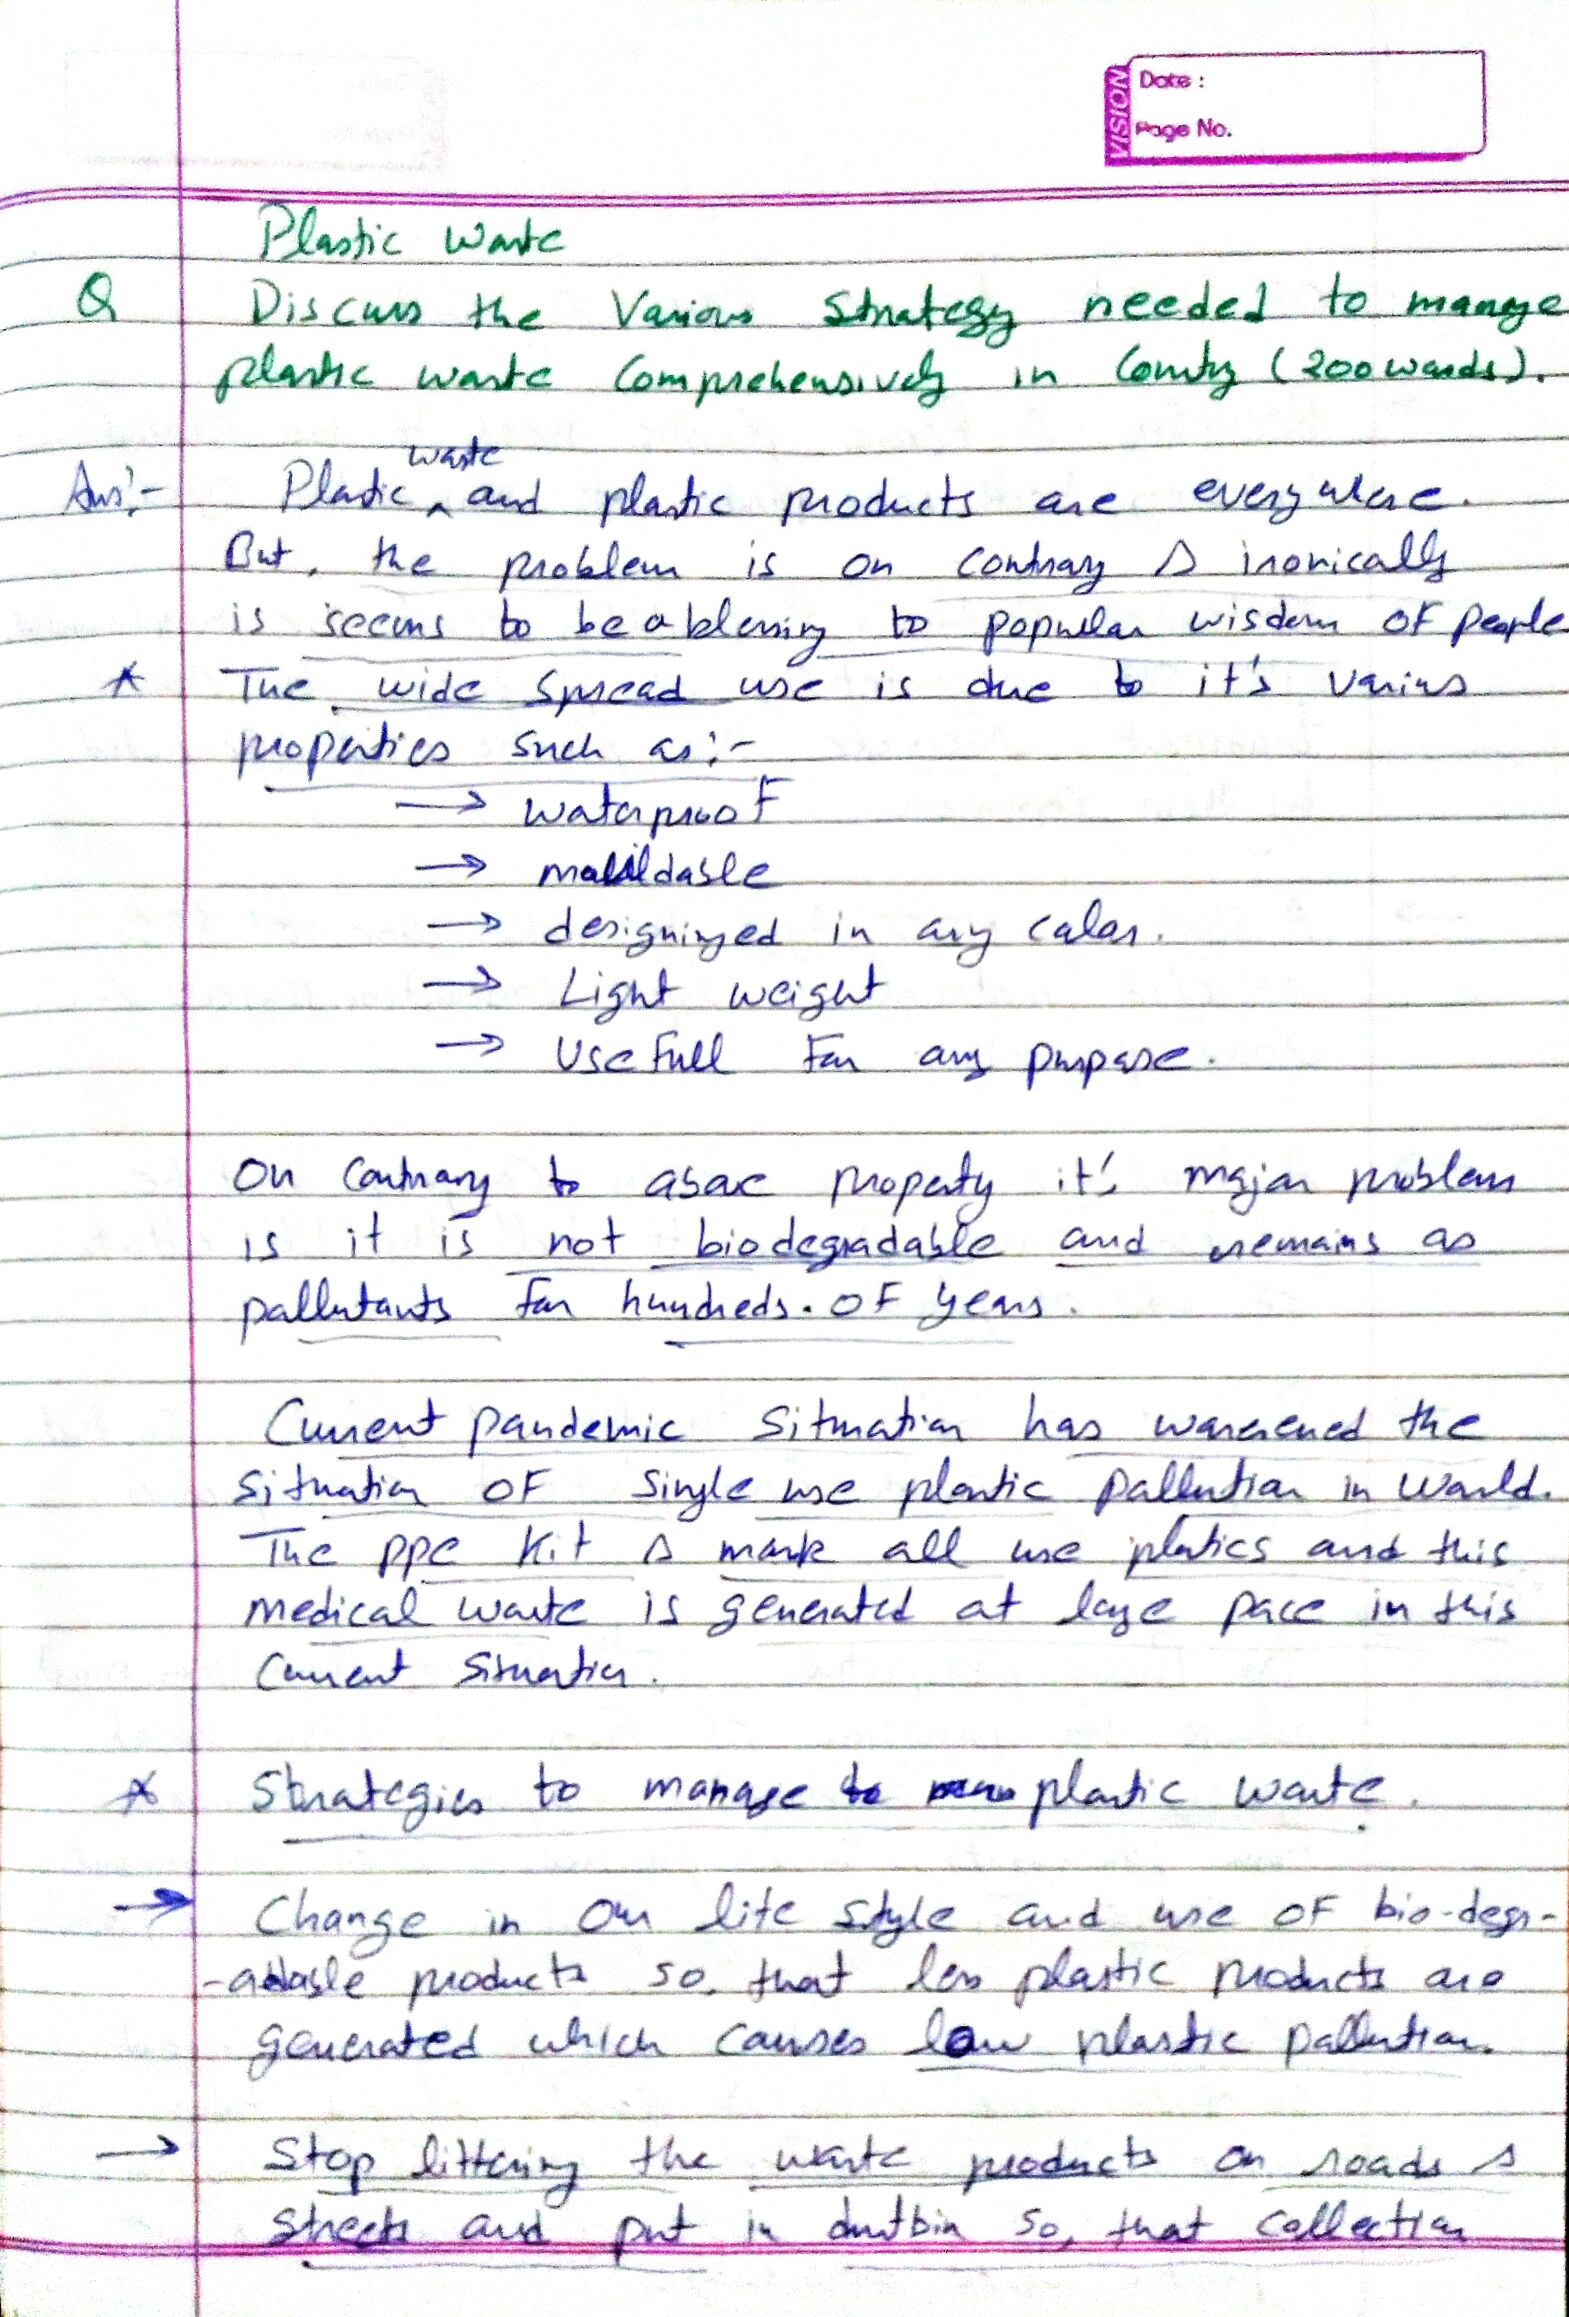 VISION
Date :
Page No.
Plastic Waste
Q Discuss the Various Strategy needed to manage
plastic waste Comprehensively in Country (200 words).
waste
Ans:- Plastic ^ and plastic products are everywhere.
But, the problem is on contrary & ironically
is seems to be a blessing to popular wisdom of people
* The wide spread use is due to it's various
properties such as:-
→ waterproof
→
→ designinged in any color.
→ Light weight
→ Usefull for any purpose.
On Contrary to above property it's major problem
is it is not biodegradable and remains as
pollutants for hundreds. of years.
Current pandemic situation has the
situation of single use plastic pollution in world.
The ppe kit & mask all use platics and this
medical waste is generated at large pace in this
current situation.
* Strategies to manage to plastic waste.
→ Change in our life style and use of bio-degr-
-adable products so, that less plastic products are
generated which causes low plastic pollution.
→ Stop littering the waste products on roads &
streets and put in dustbin so, that collection